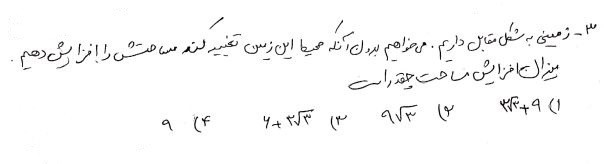 ۳- زمینی به شکل مقابل داریم. می‌خواهیم بدون آنکه محیط این زمین تغییر کند مساحتش را افزایش دهیم.
میزان افزایش مساحت چقدر است
۱) ۹+۳√۳ ۲) ۹√۳ ۳) ۶+۲√۳ ۴) ۹